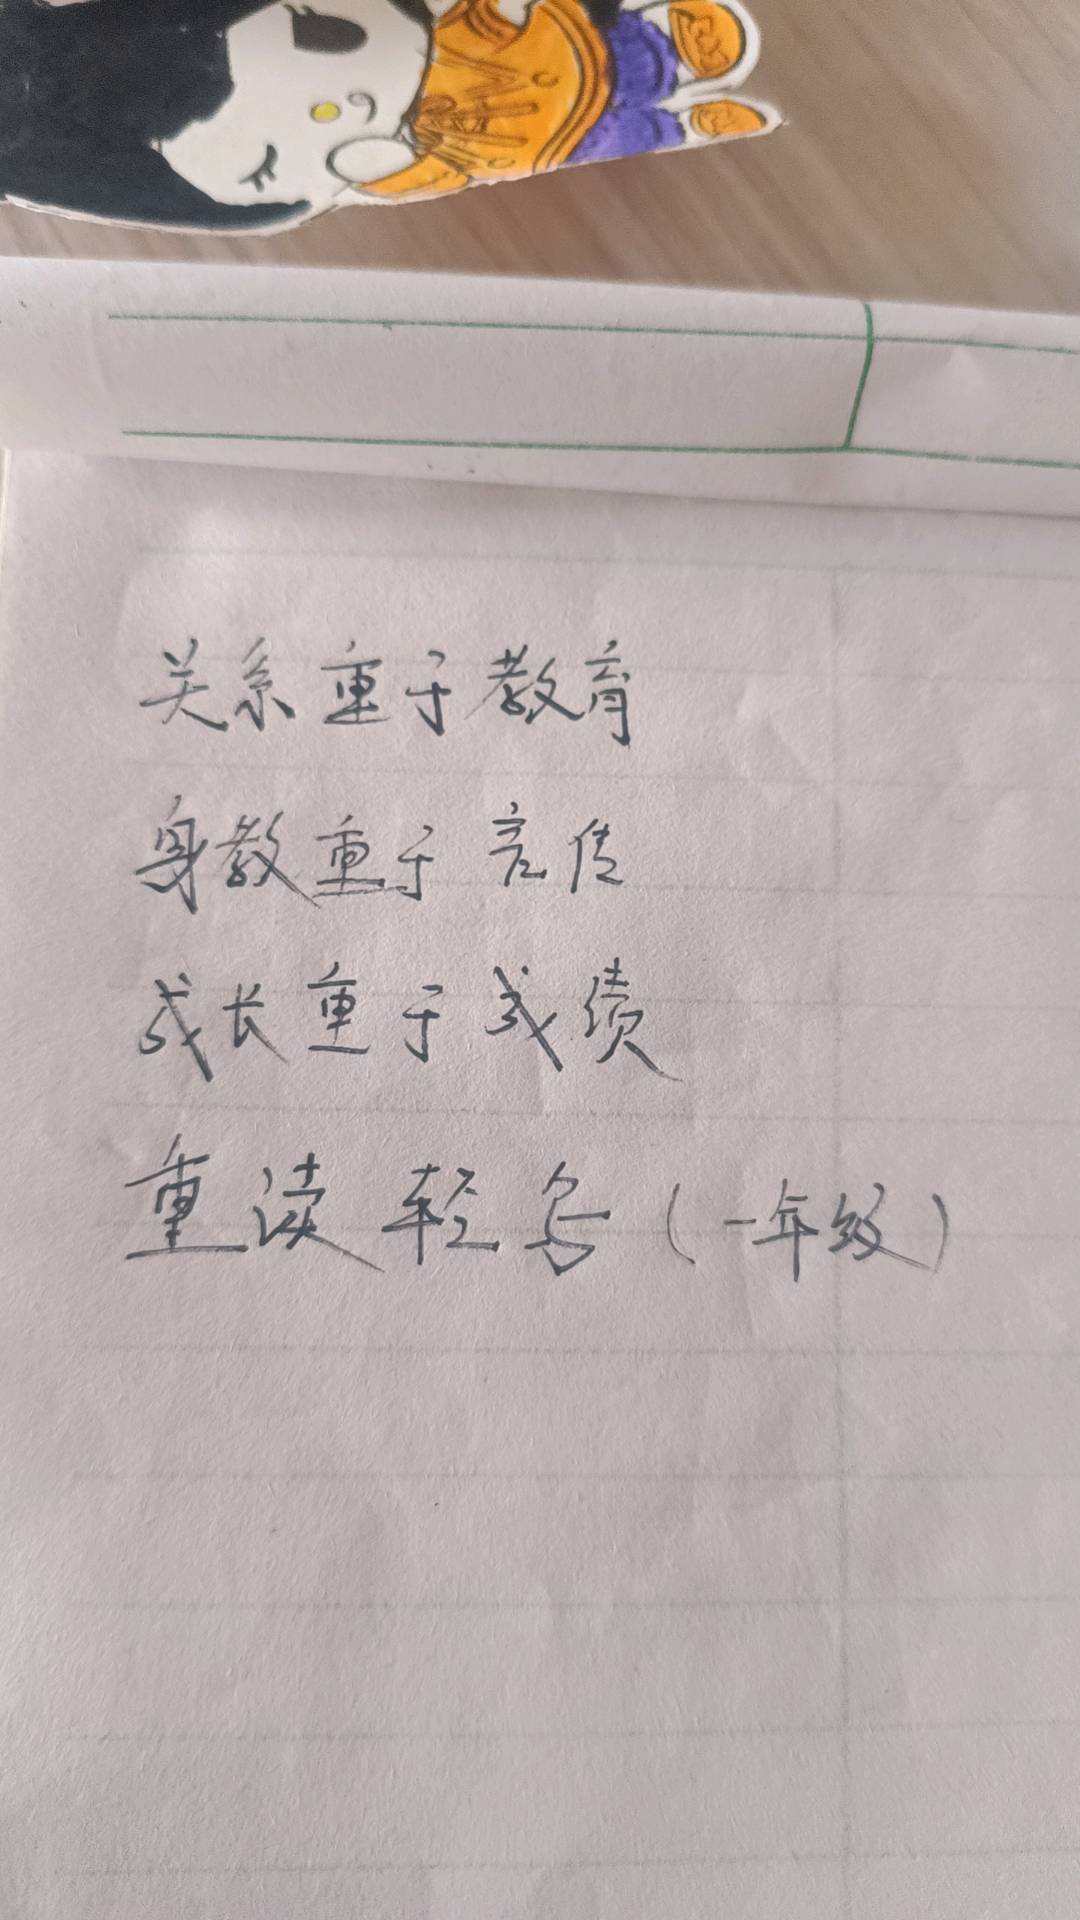 关系重于教育
身教重于言传
成长重于成绩
重读轻写（一年级）